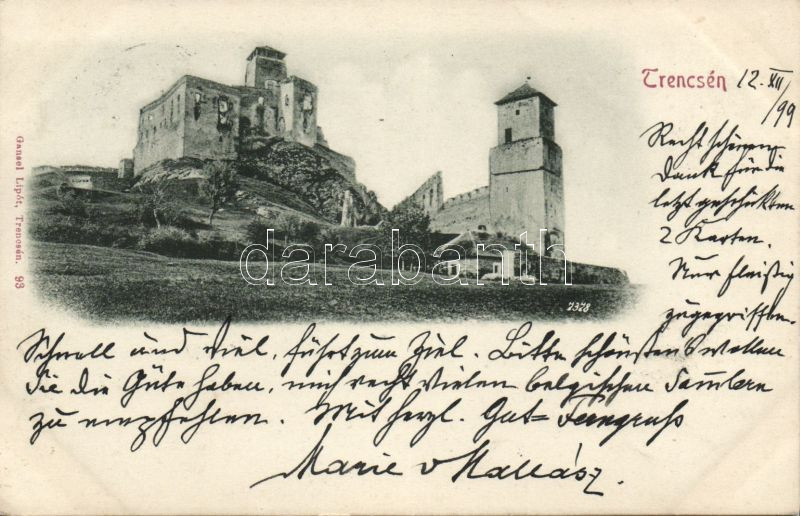 Trencsén 12. XII/99
Recht schönen
Dank für die
letzt geschickten
2 Karten.
Nur fleissig
zugegriffen.
Schnell und viel, führt zum Ziel. Bitte schönstens wollen
Sie die Güte haben, mich recht vielen belgischen Sammlern
zu empfehlen. Mit herzl. Gut= Ferngruss
Marie v
Gansel Lipót, Trencsén. 93
7328
darabanth